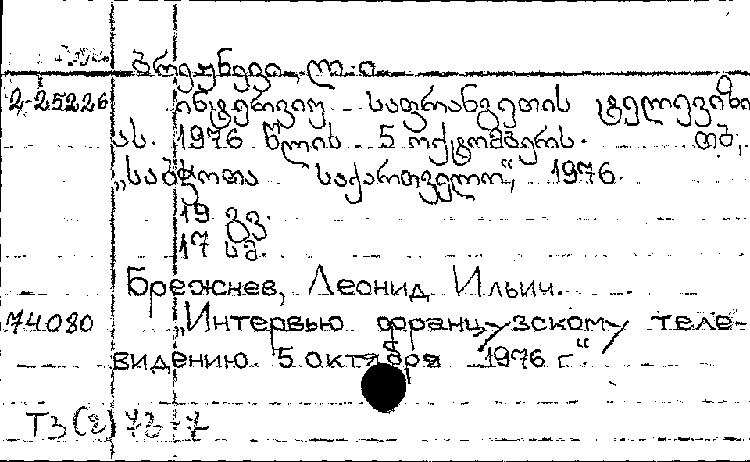 ბრეჟნევი, ლ. ი.
2-25226 ინტერვიუ საფრანგეთის ტელევიზი
ას. 1976 წლის 5 ოქტომბერს. თბ.,
„საბჭოთა საქართველო“, 1976.
19 გვ.
17 სმ.
Брежнев, Леонид Ильич.
74080 „Интервью французскому теле-
видению 5 октября 1976 г“
Т3(2)73-7